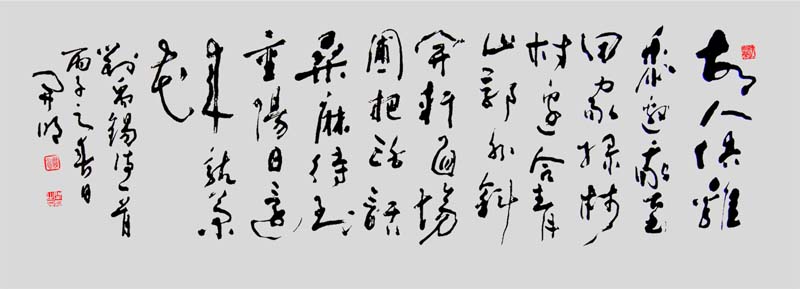 故人俱雞
黍邀我至
田家綠樹
村邊合青
山郭外斜
開軒面場
圃把酒話
桑麻待到
重陽日還
來就菊
花
劉禹錫诗一首
丙子之春日
開明